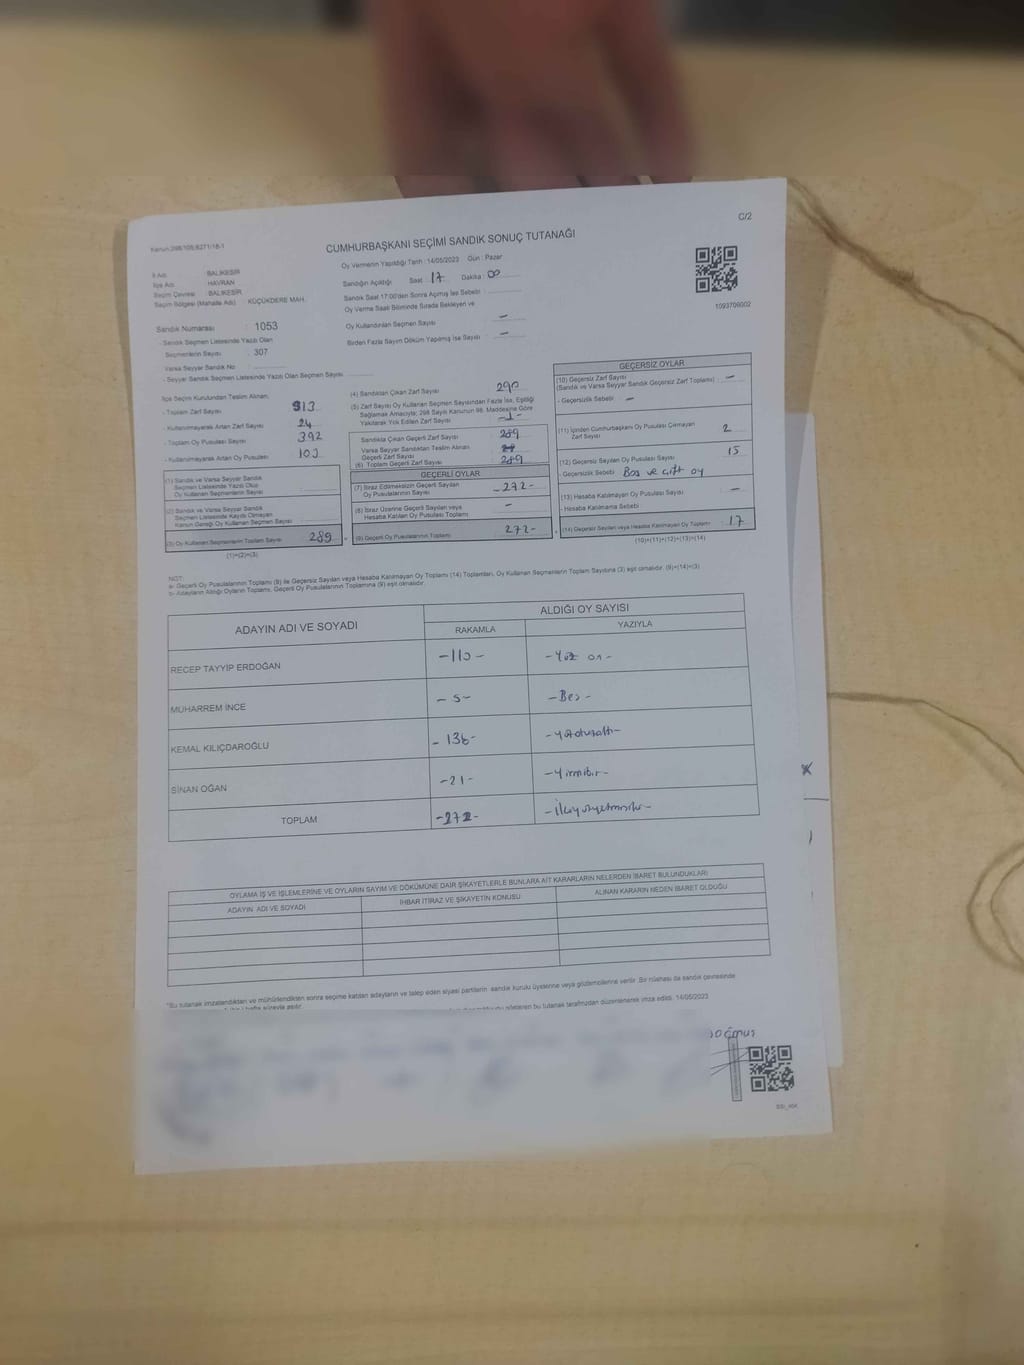 C/2
Kanun:298/105,6271/18-1
CUMHURBAŞKANI SEÇİMİ SANDIK SONUÇ TUTANAĞI
Oy Vermenin Yapıldığı Tarih : 14/05/2023 Gün : Pazar
İl Adı : BALIKESİR
İlçe Adı : HAVRAN
Seçim Çevresi : BALIKESİR
Seçim Bölgesi (Mahalle Adı) : KÜÇÜKDERE MAH.
Sandığın Açıldığı Saat : 17 Dakika : 00
Sandık Saat 17:00'den Sonra Açılmış İse Sebebi :
Oy Verme Saati Bitiminde Sırada Bekleyen ve
Oy Kullandırılan Seçmen Sayısı : —
Birden Fazla Sayım Döküm Yapılmış İse Sayısı : —
1093700002
Sandık Numarası : 1053
- Sandık Seçmen Listesinde Yazılı Olan
Seçmenlerin Sayısı : 307
Varsa Seyyar Sandık No :
- Seyyar Sandık Seçmen Listesinde Yazılı Olan Seçmen Sayısı :
İlçe Seçim Kurulundan Teslim Alınan;
- Toplam Zarf Sayısı : 313
- Kullanılmayarak Artan Zarf Sayısı : 24
- Toplam Oy Pusulası Sayısı : 392
- Kullanılmayarak Artan Oy Pusulası : 103
(1) Sandık ve Varsa Seyyar Sandık
Seçmen Listesinde Yazılı Olup
Oy Kullanan Seçmenlerin Sayısı :
(2) Sandık ve Varsa Seyyar Sandık
Seçmen Listesinde Kayıtlı Olmayan
Kanun Gereği Oy Kullanan Seçmen Sayısı :
(3) Oy Kullanan Seçmenlerin Toplam Sayısı : 289
(1)+(2)=(3)
(4) Sandıktan Çıkan Zarf Sayısı : 290
(5) Zarf Sayısı Oy Kullanan Seçmen Sayısından Fazla İse, Eşitliği
Sağlamak Amacıyla; 298 Sayılı Kanunun 98. Maddesine Göre
Yakılarak Yok Edilen Zarf Sayısı : -1-
Sandıkta Çıkan Geçerli Zarf Sayısı : 289
Varsa Seyyar Sandıktan Teslim Alınan
Geçerli Zarf Sayısı :
(6) Toplam Geçerli Zarf Sayısı : 289
GEÇERLİ OYLAR
(7) İtiraz Edilmeksizin Geçerli Sayılan
Oy Pusulalarının Sayısı : -272-
(8) İtiraz Üzerine Geçerli Sayılan veya
Hesaba Katılan Oy Pusulası Toplamı : —
(9) Geçerli Oy Pusulalarının Toplamı : 272-
GEÇERSİZ OYLAR
(10) Geçersiz Zarf Sayısı
(Sandık ve Varsa Seyyar Sandık Geçersiz Zarf Toplamı) : —
- Geçersizlik Sebebi : —
(11) İçinden Cumhurbaşkanı Oy Pusulası Çıkmayan
Zarf Sayısı : 2
(12) Geçersiz Sayılan Oy Pusulası Sayısı : 15
- Geçersizlik Sebebi : Boş ve çift oy
(13) Hesaba Katılmayan Oy Pusulası Sayısı : —
- Hesaba Katılmama Sebebi :
(14) Geçersiz Sayılan veya Hesaba Katılmayan Oy Toplamı : 17
(10)+(11)+(12)+(13)=(14)
NOT:
a- Geçerli Oy Pusulalarının Toplamı (9) ile Geçersiz Sayılan veya Hesaba Katılmayan Oy Toplamı (14) Toplamları, Oy Kullanan Seçmenlerin Toplam Sayısına (3) eşit olmalıdır. (9)+(14)=(3)
b- Adayların Aldığı Oyların Toplamı, Geçerli Oy Pusulalarının Toplamına (9) eşit olmalıdır.
ADAYIN ADI VE SOYADI ALDIĞI OY SAYISI
RAKAMLA YAZIYLA
RECEP TAYYİP ERDOĞAN -110- -Yüz on-
MUHARREM İNCE -5- -Beş-
KEMAL KILIÇDAROĞLU -136- -Yüzotuzaltı-
SİNAN OĞAN -21- -Yirmibir-
TOPLAM -272- -İkiyüzyetmişiki-
OYLAMA İŞ VE İŞLEMLERİNE VE OYLARIN SAYIM VE DÖKÜMÜNE DAİR ŞİKAYETLERLE BUNLARA AİT KARARLARIN NELERDEN İBARET BULUNDUKLARI
ADAYIN ADI VE SOYADI İHBAR İTİRAZ VE ŞİKAYETİN KONUSU ALINAN KARARIN NEDEN İBARET OLDUĞU
*Bu tutanak imzalandıktan ve mühürlendikten sonra seçime katılan adayların ve talep eden siyasi partilerin sandık kurulu üyelerine veya gözlemcilerine verilir. Bir nüshası da sandık çevresinde
bir hafta süreyle asılır.
gösteren bu tutanak tarafımızdan düzenlenerek imza edildi. 14/05/2023